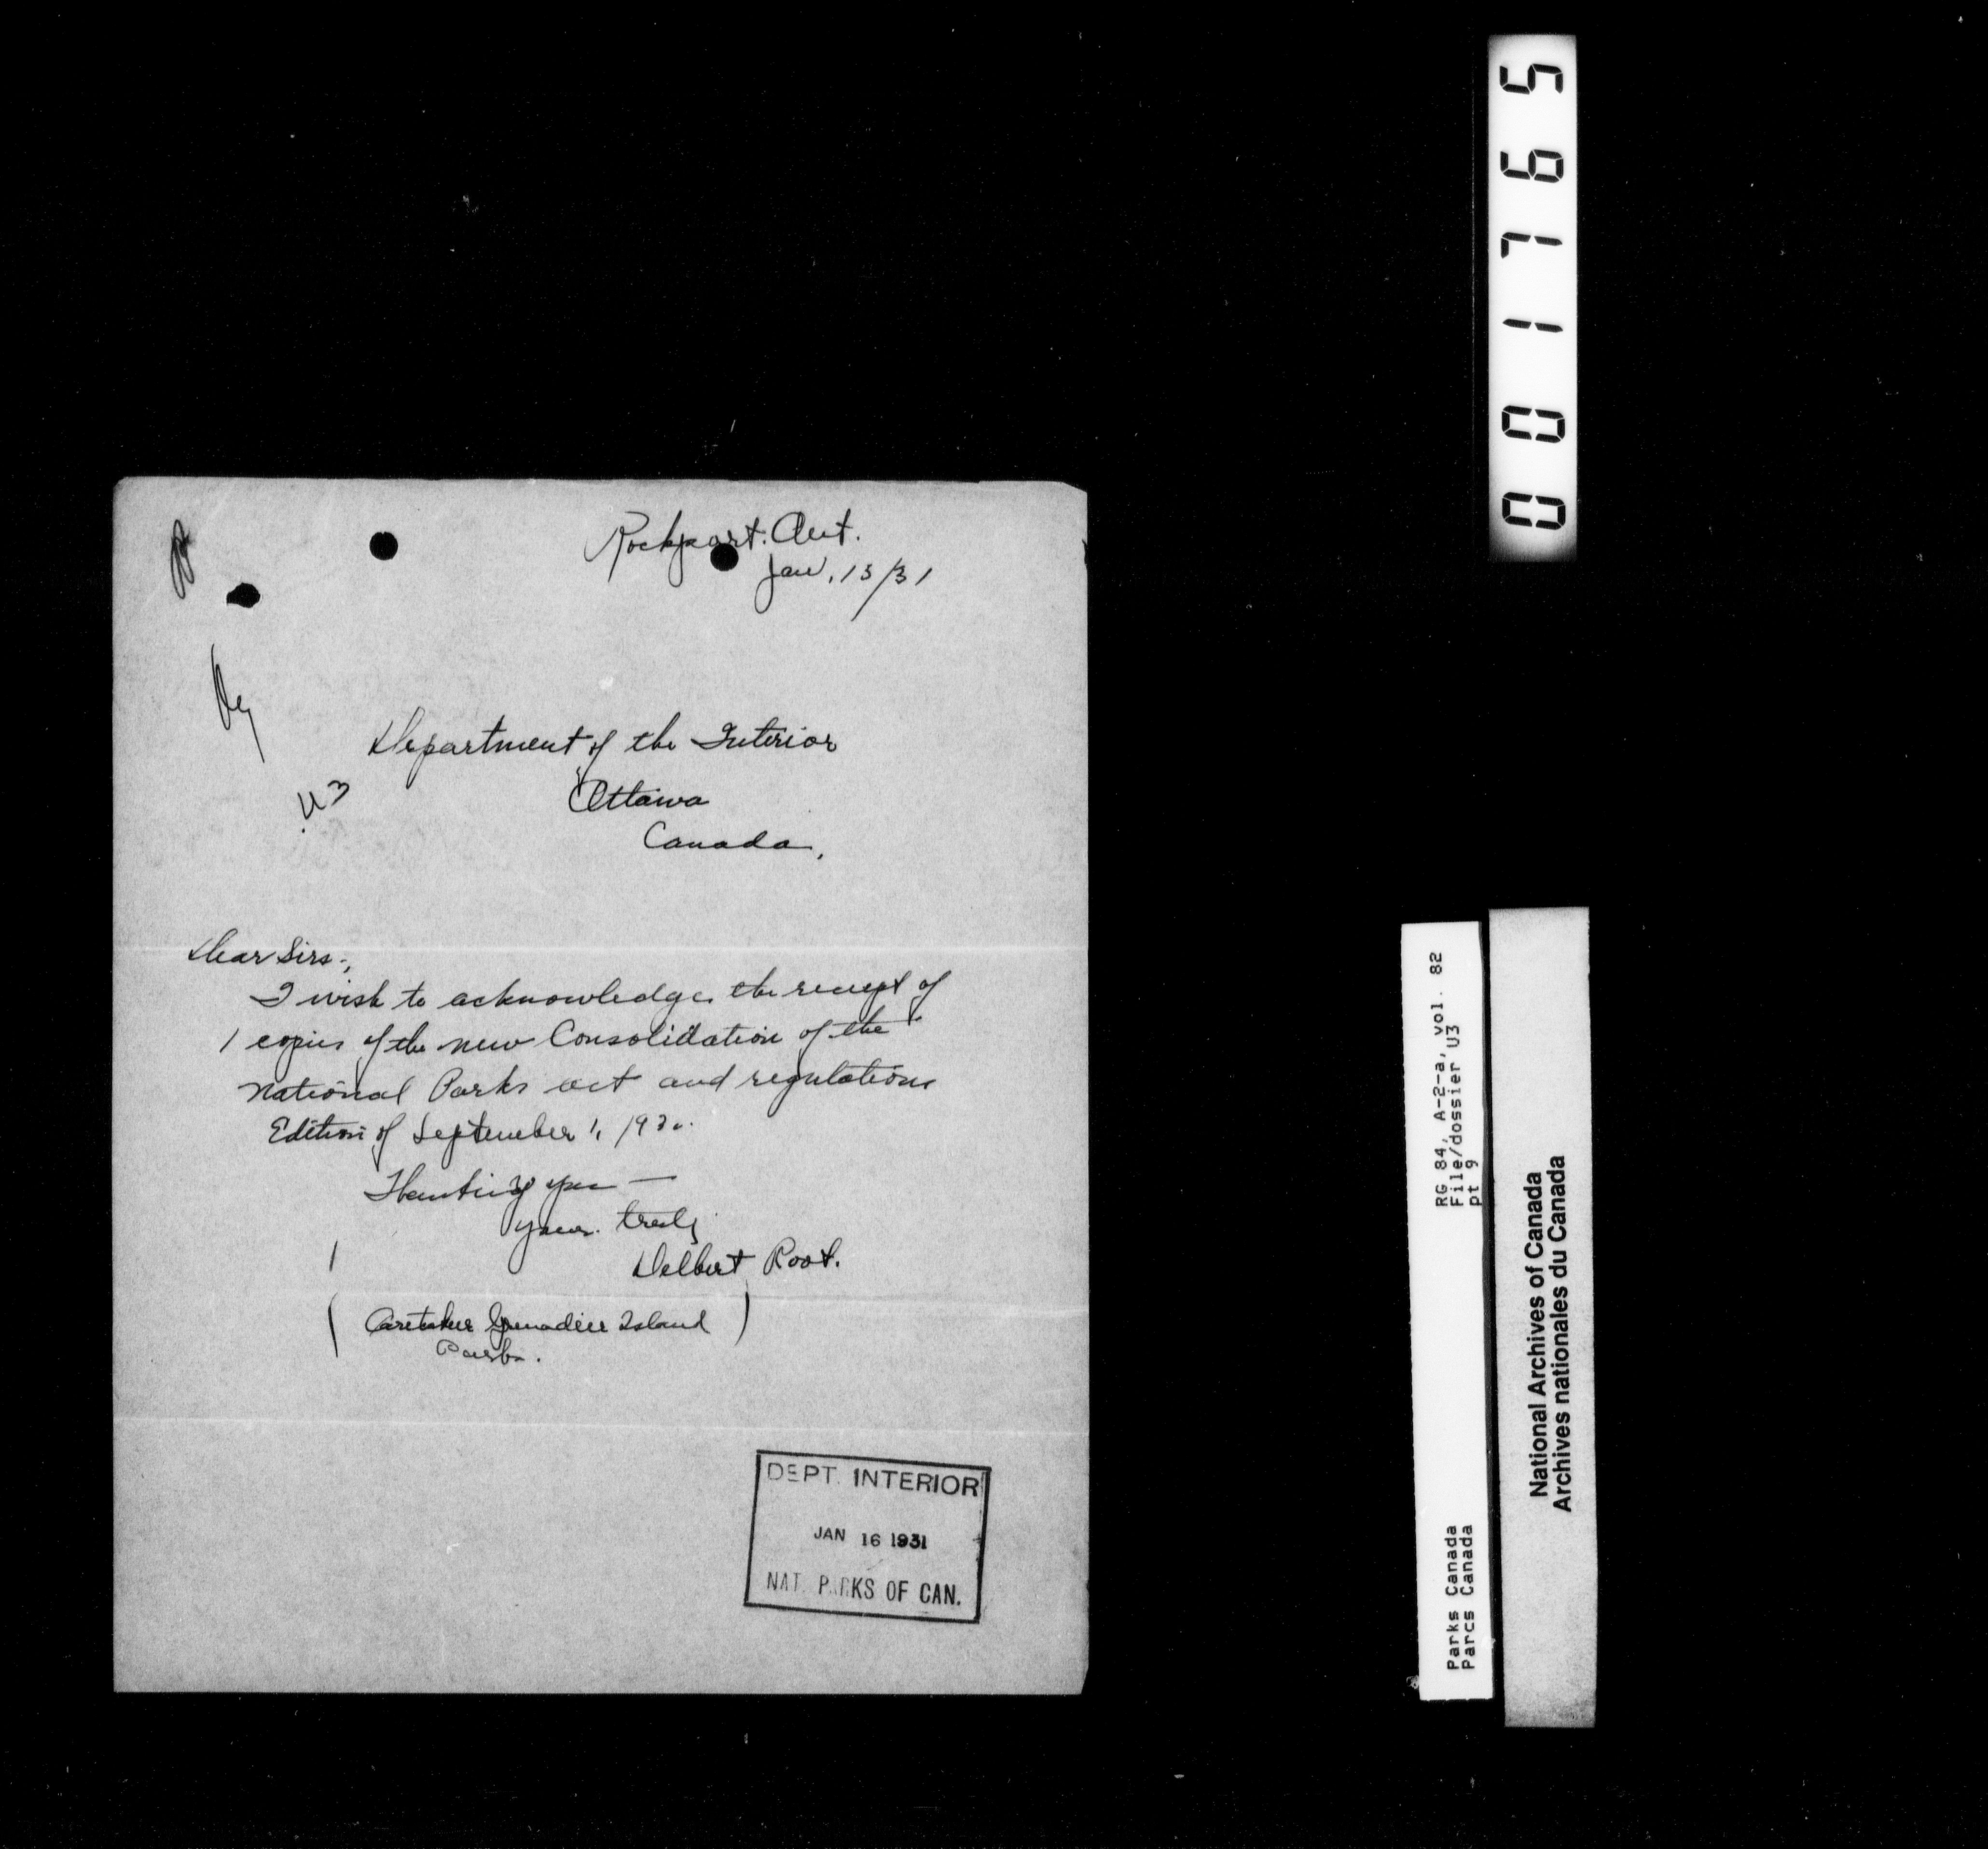 Rockport. Ont.
Jan, 13/31
U3
Department of the Interior
Ottawa
Canada,
Dear Sirs-,
I wish to acknowledge the receipt of
1 copies of the new Consolidation of the
National Parks act and regulations
Edition of September 1, 1930.
Thanking you —
Yours. truly
Delbert Root.
( Caretaker Grenadier Island )
Parks.
DEPT. INTERIOR
JAN 16 1931
NAT. PARKS OF CAN.
001765
RG 84, A-2-a, vol. 82
File/dossier U3
pt 9
Parks Canada
Parcs Canada
National Archives of Canada
Archives nationales du Canada